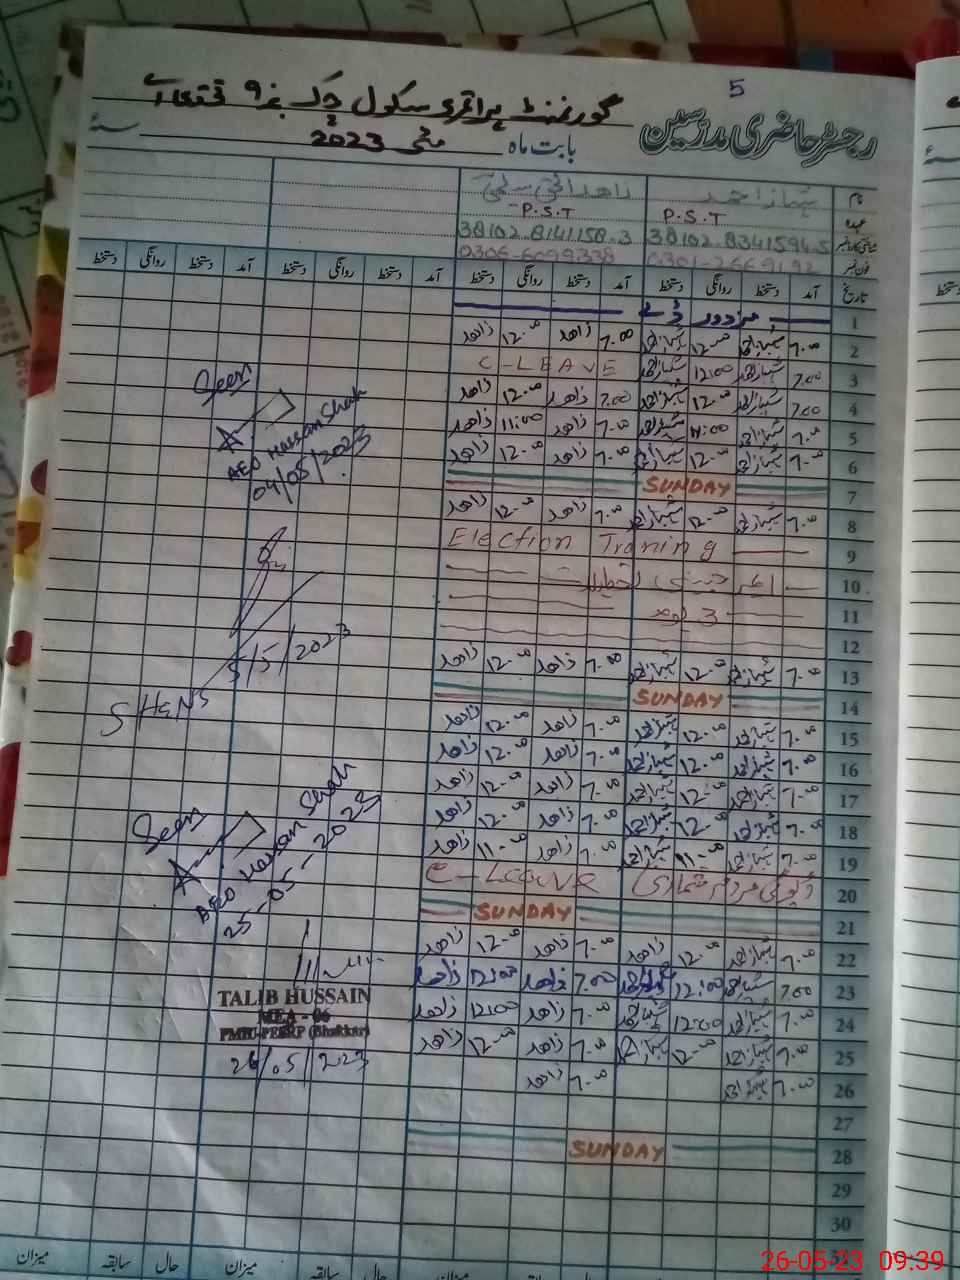 5
رجسٹر حاضری مدرسین
گورنمنٹ پرائمری سکول چک نمبر 9
بابت ماہ مئی 2023 سنہ
نام شہباز احمد زاھد
عہدہ P.S.T P.S.T
شناختی کارڈ نمبر 38102-8341594-5 38102-8141158-3
فون نمبر 0301-2669192 0306-6099338
تاریخ آمد دستخط روانگی دستخط آمد دستخط روانگی دستخط آمد دستخط روانگی دستخط آمد دستخط روانگی دستخط
1 مزدور ڈے
2 7.00 شہباز احمد 12.00 شہباز احمد 7.00 زاھد 12.00 زاھد
3 7.00 شہباز احمد 12:00 شہباز احمد C-LEAVE
4 7.00 شہباز احمد 12.00 شہباز احمد 7.00 زاھد 12.00 زاھد
5 7.00 شہباز احمد 11:00 شہباز احمد 7.00 زاھد 11:00 زاھد
6 7.00 شہباز احمد 12.00 شہباز احمد 7.00 زاھد 12.00 زاھد
7 SUNDAY
8 7.00 شہباز احمد 12.00 شہباز احمد 7.00 زاھد 12.00 زاھد
9 Election Traning
10 ایمرجنسی تعطیلات
11 3 یوم
12
13 7.00 شہباز احمد 12.00 شہباز احمد 7.00 زاھد 12.00 زاھد
14 SUNDAY
15 7.00 شہباز احمد 12.00 شہباز احمد 7.00 زاھد 12.00 زاھد
16 7.00 شہباز احمد 12.00 شہباز احمد 7.00 زاھد 12.00 زاھد
17 7.00 شہباز احمد 12.00 شہباز احمد 7.00 زاھد 12.00 زاھد
18 7.00 شہباز احمد 12.00 شہباز احمد 7.00 زاھد 12.00 زاھد
19 7.00 شہباز احمد 11.00 شہباز احمد 7.00 زاھد 11.00 زاھد
20 ڈیوٹی مردم شماری C-Leave
21 SUNDAY
22 7.00 شہباز احمد 12.00 زاھد 7.00 زاھد 12.00 زاھد
23 7.00 شہباز احمد 12:00 شہباز احمد 7.00 زاھد 12:00 زاھد
24 7.00 شہباز احمد 12:00 شہباز احمد 7.00 زاھد 12:00 زاھد
25 7.00 شہباز احمد 12.00 شہباز احمد 7.00 زاھد 12.00 زاھد
26 7.00 شہباز احمد 7.00 زاھد
27
28 SUNDAY
29
30
میزان حال سابقہ میزان حال سابقہ میزان
Seen
AEO Hassan Shah
04/05/2023
5/5/2023
Seen
AEO Hassan Shah
25-05-2023
TALIB HUSSAIN
MEA - 06
PMIU-PESRP (Bhakkar)
26/05/2023
26-05-23 09:39